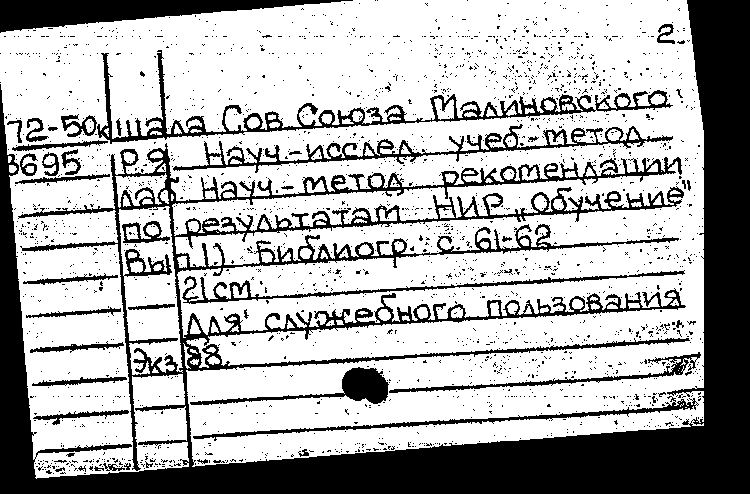 2.
72-50к шала Сов. Союза Малиновского
3695 Р.Я. Науч.-исслед. учеб.-метод.
лаб. Науч.-метод. рекомендации
по результатам НИР „Обучение"
Вып.1). Библиогр.: с. 61-62
21 см.
Для служебного пользования
Экз. 88.